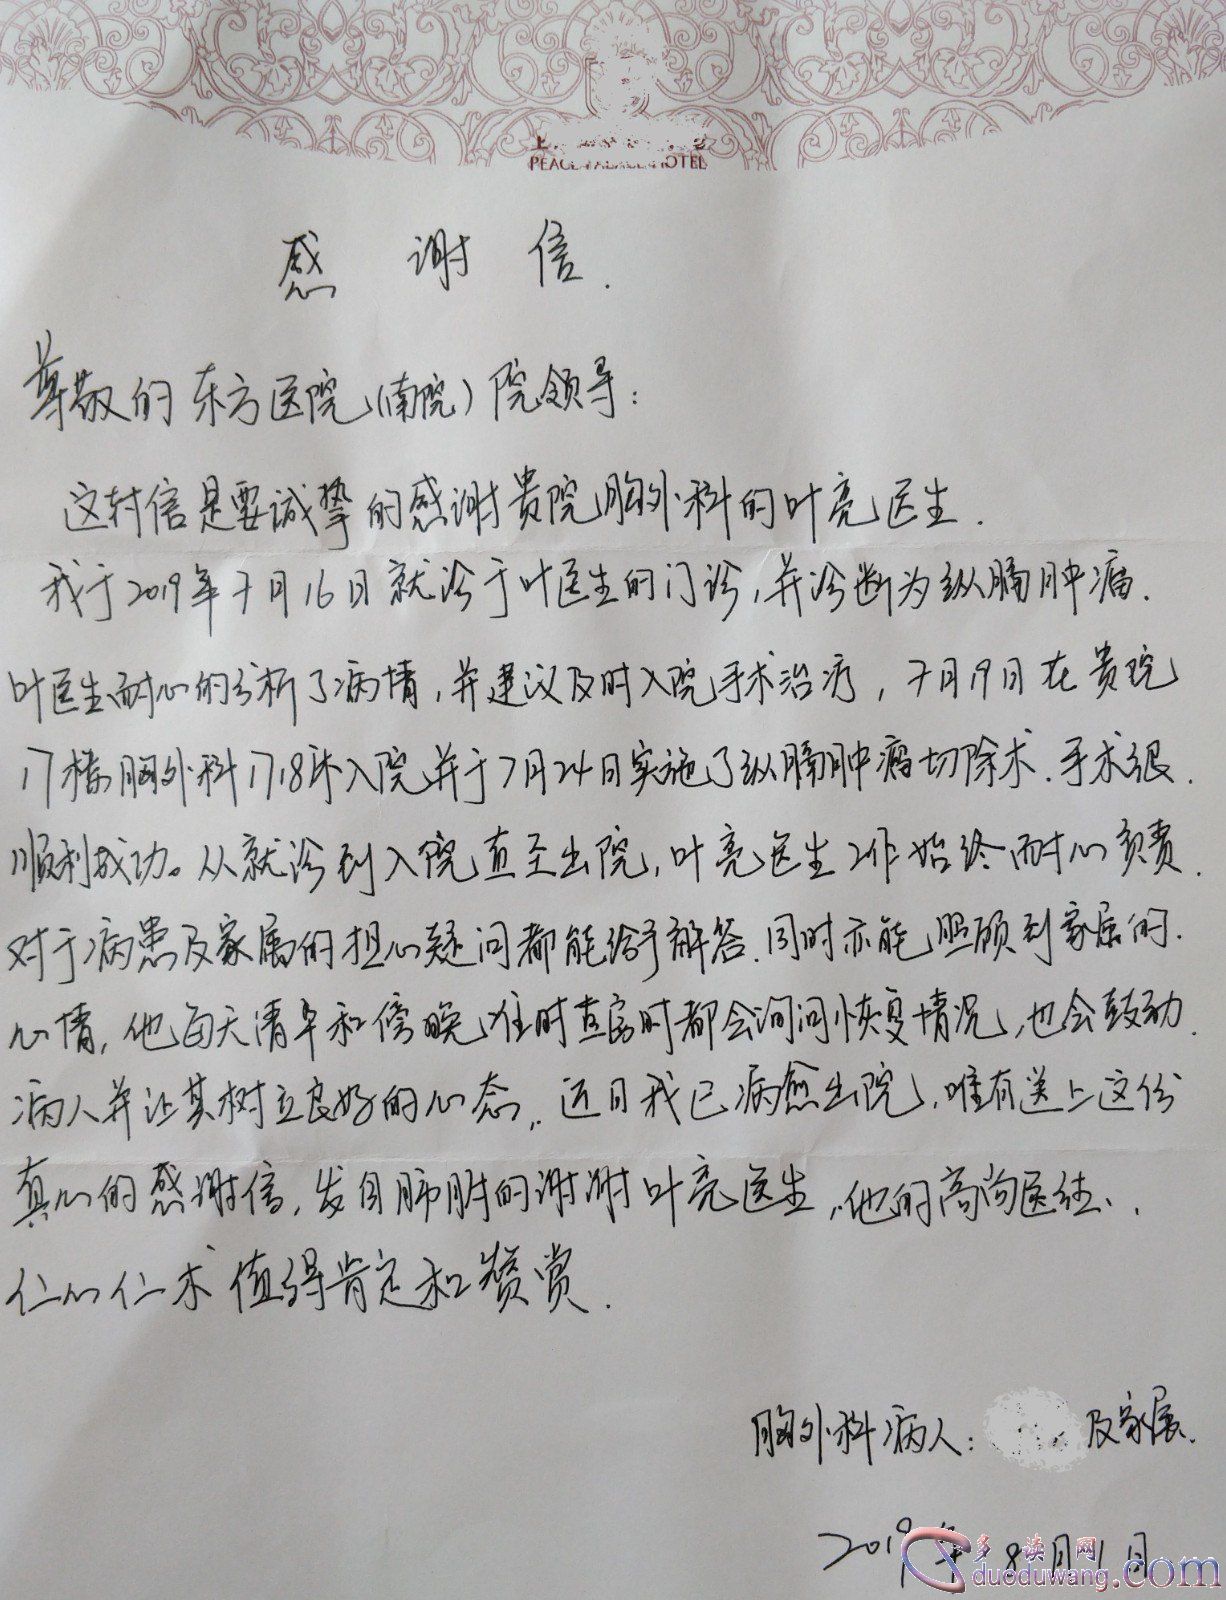 PEACE PALACE HOTEL
感谢信.
尊敬的东方医院(南院)院领导:
这封信是要诚挚的感谢贵院胸外科的叶亮医生.
我于2019年7月16日就诊于叶医生的门诊,并诊断为纵膈肿瘤.
叶医生耐心的分析了病情,并建议及时入院手术治疗,7月19日在贵院
17楼胸外科1718床入院,并于7月24日实施了纵膈肿瘤切除术.手术很.
顺利成功。从就诊到入院直至出院,叶亮医生工作始终耐心负责.
对于病患及家属的担心疑问都能给予解答.同时亦能照顾到家属的.
心情,他每天清早和傍晚 时查房时都会询问恢复情况,也会鼓励.
病人并让其树立良好的心态.近日我已病愈出院,唯有送上这份
真心的感谢信,发自肺腑的谢谢叶亮医生,他的高尚医德、.
仁心仁术值得肯定和赞赏.
胸外科病人: 及家属.
2019年8月1日
多读网
duoduwang.com